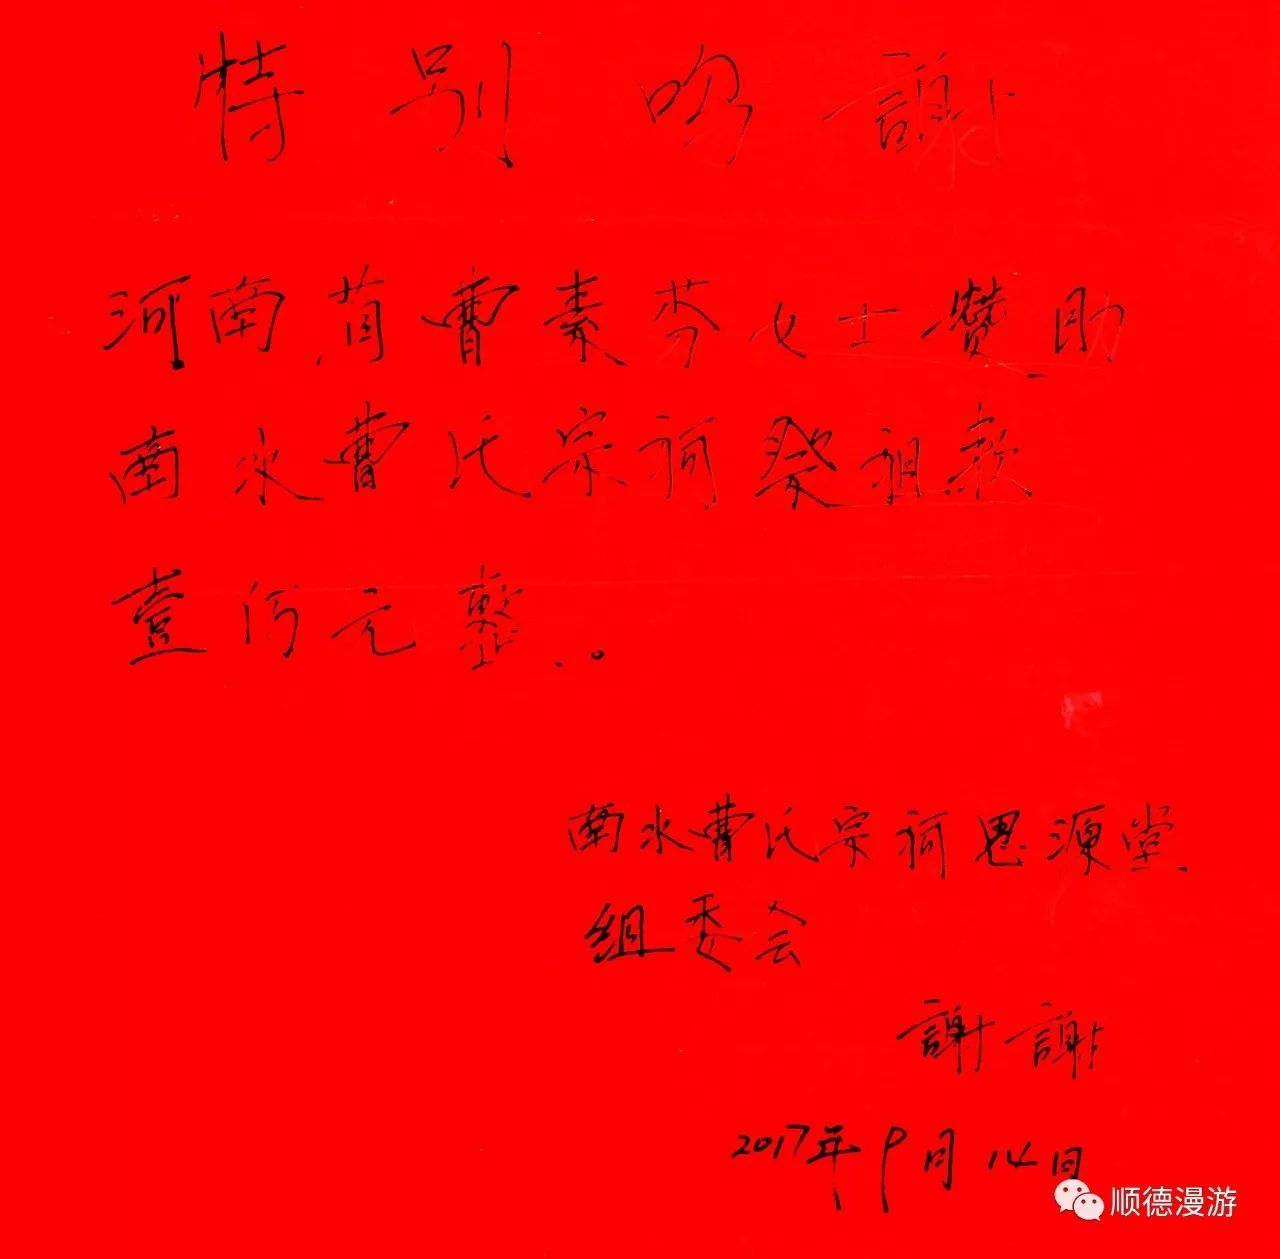 特别鸣謝
河南省曹素芬女士赞助
南水曹氏宗祠祭祖款
壹佰元整。
南水曹氏宗祠思源堂
组委会
謝謝
2017年9月14日
顺德漫游